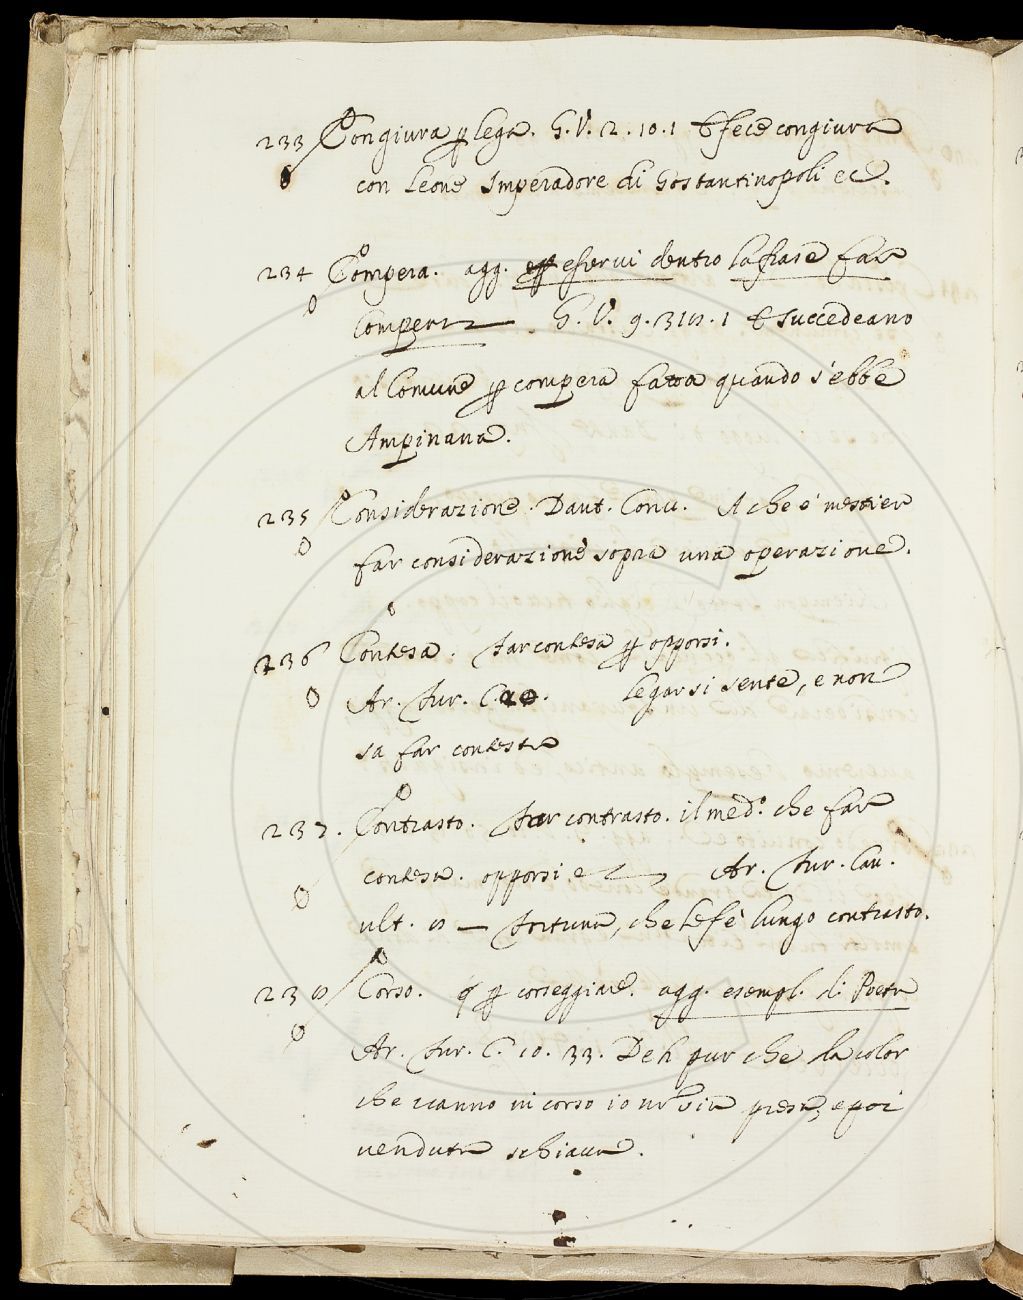 233 Congiura p lega. G. V. 2. 10. 1 E fece congiura
con Leone Imperadore di Gostantinopoli ec.
234 Compera. agg. esservi dentro la frase far
compera G. V. 9. 318. 1 E succedeano
al Comune p compera fatta quando s'ebbe
Ampinana.
235 Considerazione. Dant. Conv. A che è mestier
far considerazione sopra una operazione.
236 Contesa. Far contesa p opporsi.
Ar. Fur. C. legar si sente, e non
sa far contesa
237. Contrasto. Far contrasto. il med.º che far
contesa. opporsi e Ar. Fur. Can.
ult. 8 — Fortuna, che le fè lungo contrasto.
238 Corso. q p corseggiare. agg. esempl. di Poeta
Ar. Fur. C. 10. 33. Deh pur che da color
che vanno in corso io non sia presa, e poi
venduta schiava.